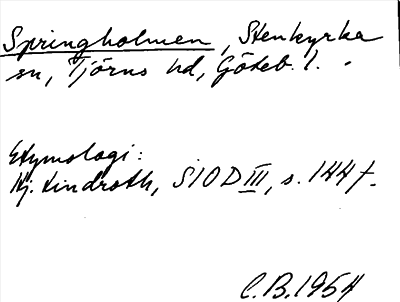 Springholmen, Stenkyrka
sn, Tjörns hd, Göteb. l.
Etymologi:
Hj. Lindroth, SIOD III, s. 144 f.
C.B. 1954